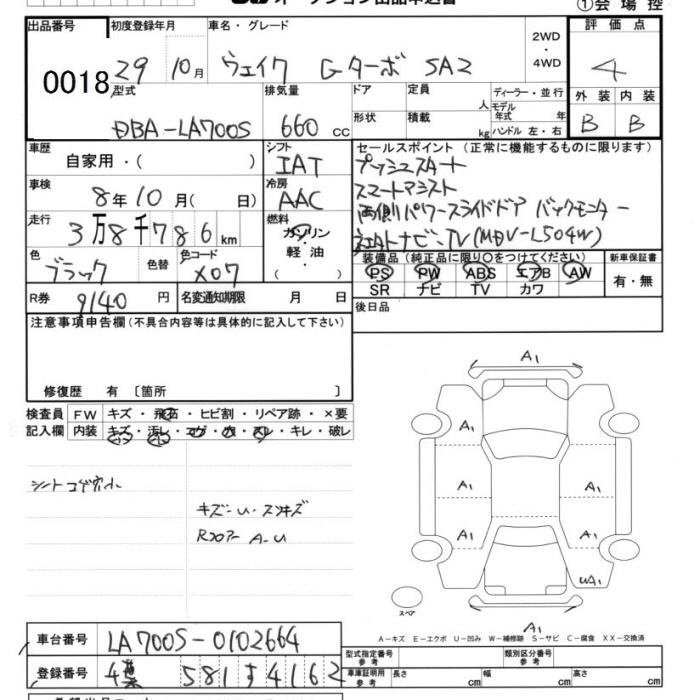 オークション出品申込書
①会場控
出品番号 0018
初度登録年月 29 10月
車名・グレード ウェイク Gターボ SA2
2WD・4WD
評価点 4
外装 B 内装 B
型式 DBA-LA700S
排気量 660 cc
ドア
形状
定員 人
積載 kg
ディーラー・並行
モデル年式 年
ハンドル 左・右
車歴 自家用・( )
シフト IAT
セールスポイント (正常に機能するものに限ります)
プッシュスタート
スマートアシスト
両側パワースライドドア バックモニター
TV(MDV-L504W)
車検 8年10月( 日)
冷房 AAC
走行 3万8千786km
燃料 ガソリン・軽油・( )
色 ブラック 色替
色コード X07
装備品(純正品に限り○をつけてください)
PS PW ABS エアB AW
SR ナビ TV カワ
新車保証書 有・無
R券 9140円
名変通知期限 月 日
後日品
注意事項申告欄(不具合内容等は具体的に記入して下さい)
修復歴 有 〔箇所 〕
検査員記入欄
FW キズ・飛石・ヒビ割・リペア跡・×要
内装 キズ・汚レ・コゲ・穴・スレ・キレ・破レ
シートコゲ穴小
キズ-U-スリキズ
Rコアー A-U
A1
A1
A1
A1
A1
A1
UA1
A1
スペア
A-キズ E-エクボ U-凹み W-補修跡 S-サビ C-腐食 XX-交換済
車台番号 LA700S-0102664
登録番号 千葉 581 す 4162
型式指定番号 参考
類別区分番号 参考
車庫証明用 参考 長さ cm 幅 cm 高さ cm